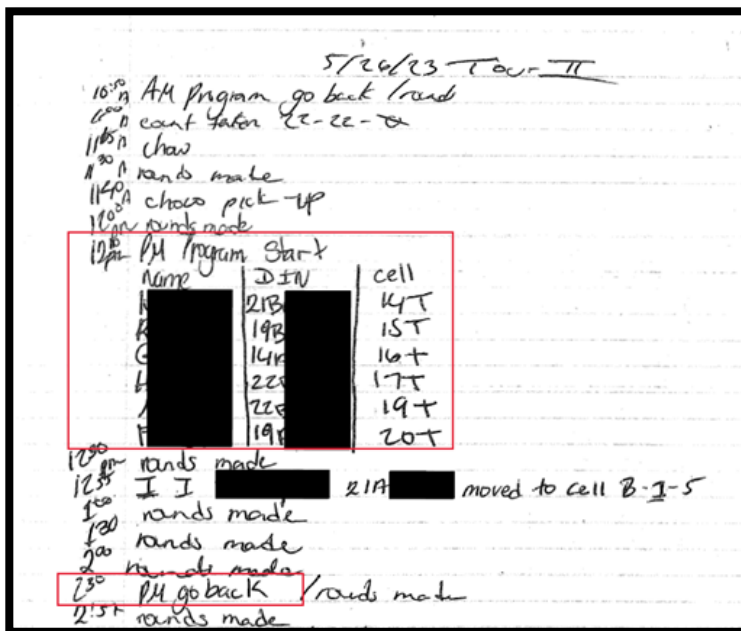 5/26/23 Tour II
10:50 A AM Program go back / round
11:00 A count taken 22-22-0
11:05 A chow
11:30 A rounds made
11:40 A chow pick-up
12:00 pm rounds made
12:10 pm PM Program Start
Name DIN cell
21B 14T
19B 15T
14 16T
22 17T
22 19T
19 20T
12:30 pm rounds made
12:35 I I 21A moved to cell B-1-5
1:00 rounds made
1:30 rounds made
2:00 rounds made
2:30 PM go back / rounds made
rounds made